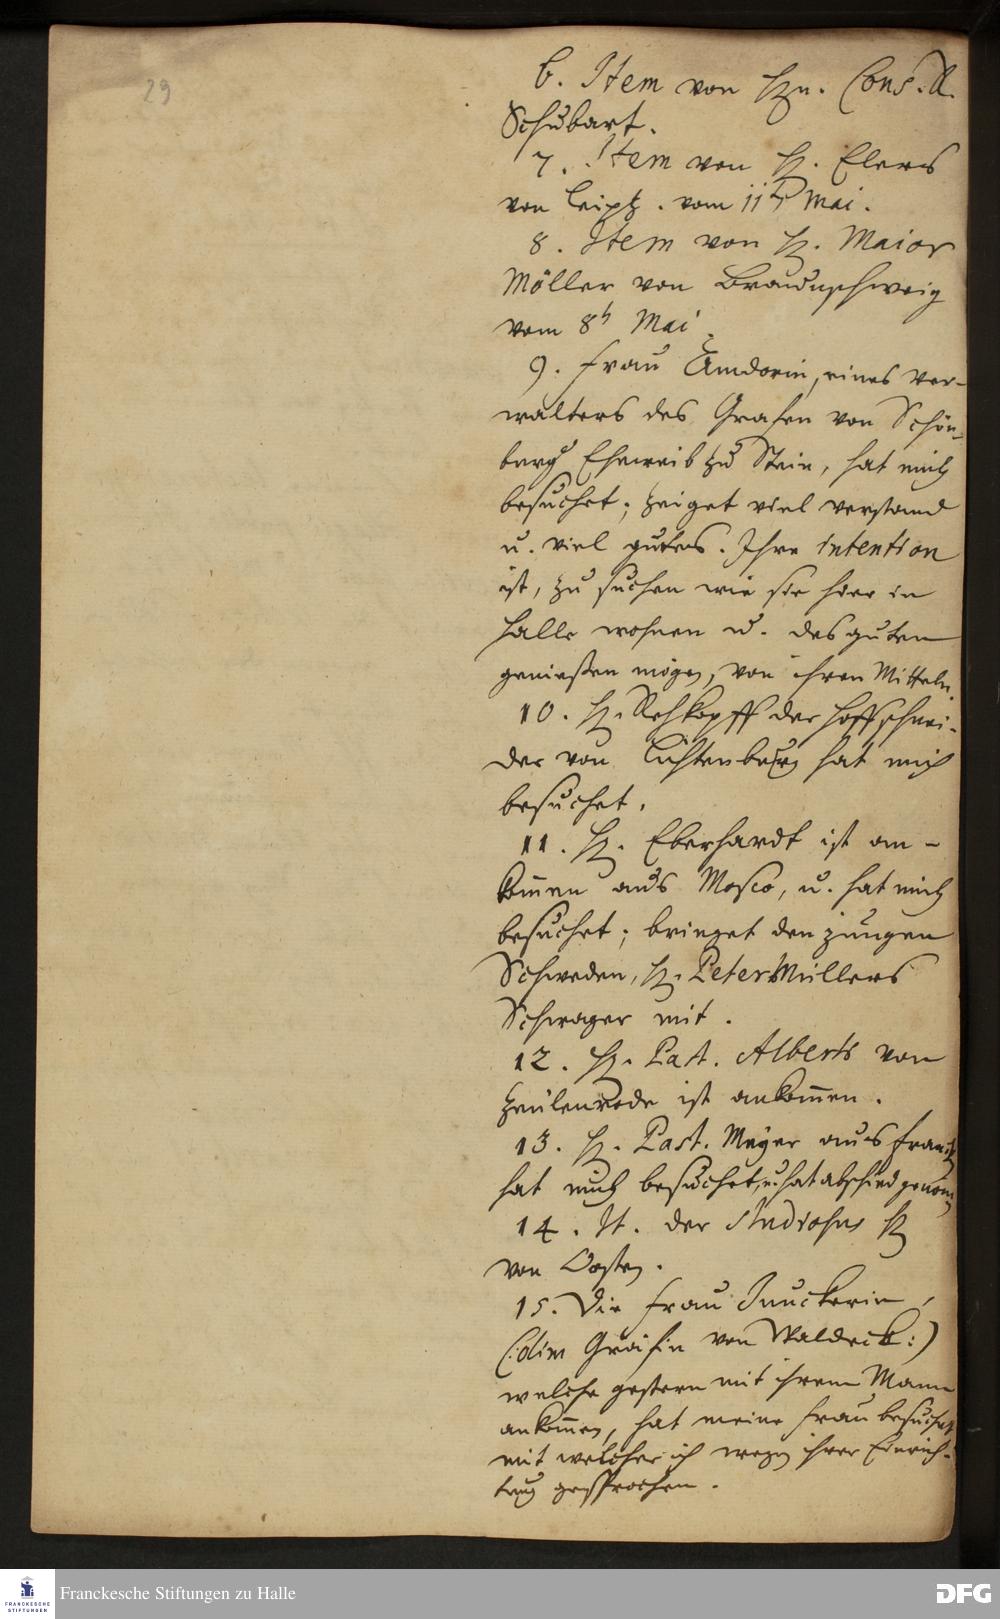 29
6. Item von Hrn. Cons. R.
Schubart.
7. Item von H. Elers
von Leipz. vom 11th Mai.
8. Item von H. Maior
Möller von Braunschweig
vom 8th Mai.
9. Frau Amdorin, eines Ver-
walters des Grafen von Schön-
burg Eheweib zu Stein, hat mich
besuchet; zeiget viel verstand
u. viel gutes. Ihre intention
ist, zu suchen wie sie hier in
Halle wohnen u. des guten
genießen mögen, von ihren Mitteln.
10. H. Rehkopff der Hoffschnei-
der von Lichtenburg hat mich
besuchet.
11. H. Eberhardt ist an-
kom̄en aus Mosco, u. hat mich
besuchet; bringet den jungen
Schweden, H. Peter Müllers
Schwager mit.
12. H. Past. Alberti von
Zeulenrode ist ankom̄en.
13. H. Past. Meyer aus
hat mich besuchet, u. hat abschied genom̄
14. It. der Studiosus H
von Oosten.
15. Die Frau Junckerin,
(:olim Gräfin von Waldeck:)
welche gestern mit ihrem Mann
ankom̄en, hat meine Frau besuchet
mit welcher ich wegen ihrer Einrich-
tung gesprochen.
Franckesche Stiftungen zu Halle
FRANCKESCHE
STIFTUNGEN
DFG